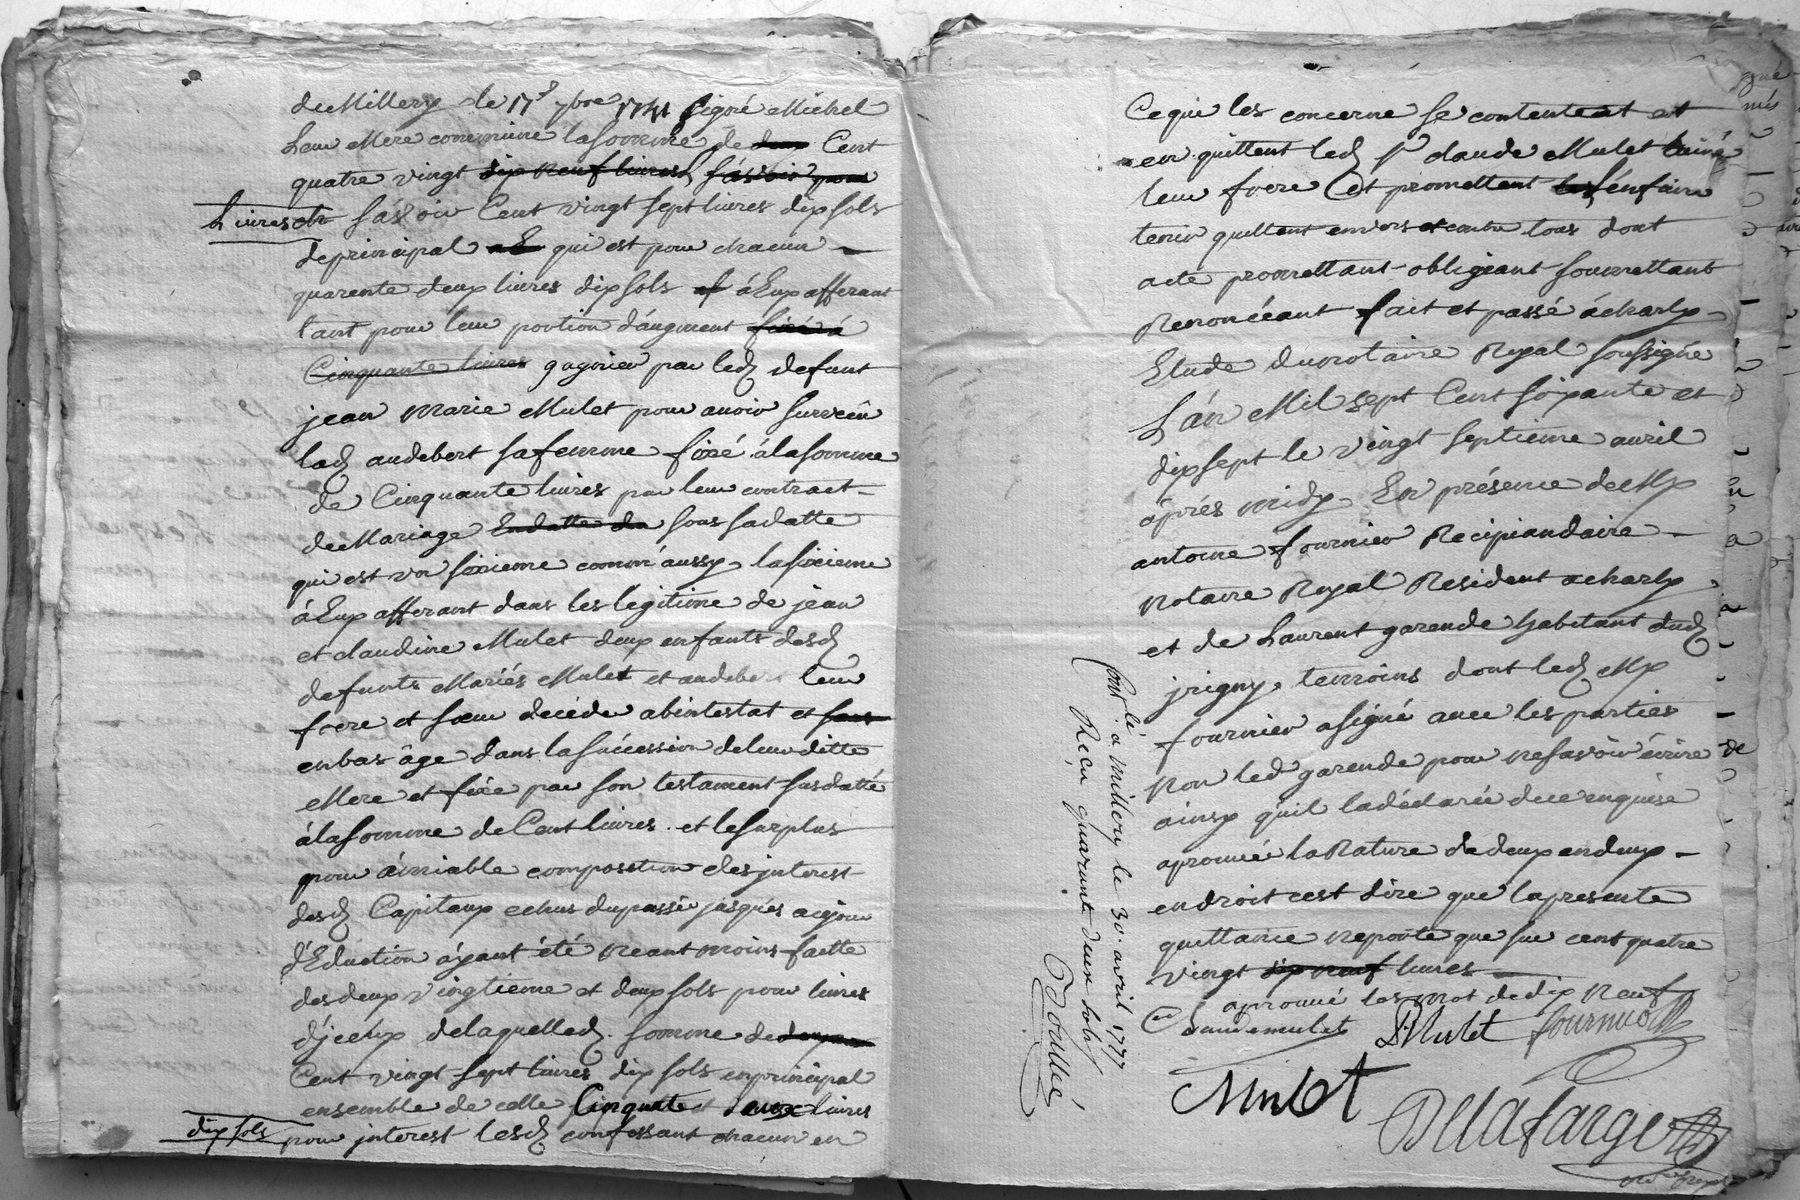 de Millery le 17e 7bre 1741 signé Michel
Leur Mere commune la somme de deux Cent
quatre vingt dix neuf livres sçavoir pour
Livres sçavoir Cent vingt sept livres dix sols
de principal qui est pour chacun
quarente deux livres dix sols à Eux afferant
tant pour leur portion d'augment fixé à
Cinquante livres gagnier par led defunt
jean marie Mulet pour avoir survecû
lad audebert sa femme fixé à la somme
de Cinquante livres par leur contract
de Mariage En datte du sous sa datte
qui est un sixieme comm'aussy la sixieme
à Eux afferant dans les legitime de jean
et claudine Mulet deux enfants desd
defunts Mariés Mulet et audebert leur
frere et sœur decéde abintestat et sans
en bas âge dans la succession de leur ditte
Mere et fixé par son testament susdatté
à la somme de Cent livres. et le surplus
pour amiable composition des jnterest
desd Capitaux echus du passé jusques a cejour
d'Eduction ayant été neantmoins faitte
des deux vingtieme et deux sols pour livres
d'jceux de laquelled. somme de deux
Cent vingt sept livres dix sols en principal
ensemble de celle Cinquate deux livres
dix sols pour jnterest lesd confessant chacun en
Ce qui les concerne se contentent et
en quittent led sr claude Mulet
leur frere et promettent les en faire
tenir quittent envers et contre tous dont
acte promettant obligeant soumettant
Renonceant fait et passé à charly
Etude du notaire Royal soussigné
L'án Mil sept Cent soixante et
dix sept le vingt septieme avril
aprés midy En présence de My
antoine fournier Recipiandaire
Notaire Royal Resident a charly
et de Laurent garende habitant dud
jrigny temoins dont led My
fournier a signé avec les parties
Non led garende pour ne savoir écrire
ainsy qu'il la déclarée dece enquise
aprouvée la Rature de deux en deux
endroit cest dire que la presente
quittance ne porte que sur cent quatre
vingt dix neuf livres
aprouvé les mot de dix neuf
Claude mulet PMulet fournier
Mulet
Dellafarge
Conlé a millery le 30. avril 1777
Reçu quarante deux sols